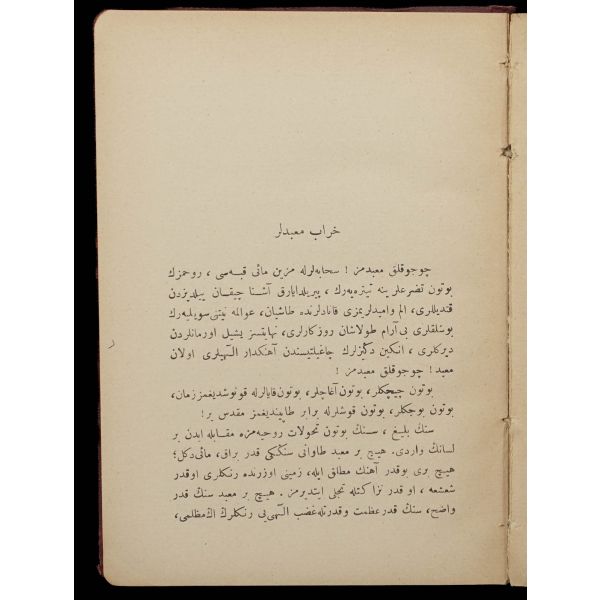 خراب معبدلر
چوجوقلق معبدمز ! سحابه‌لرله مزین مائی قبه‌سی ، روحمزك
بوتون تضرعلرینه تیتره‌یه‌رك ، پیریلدایارق آشنا چیقان ییلدیزدن
قندیللری، الم وامیدلریمزی قانادلرنده طاشیان، عوالمه نیتنی سویلیه‌رك
بوشلقلری بی آرام طولاشان روزكارلری، نهایتسز یشیل اورمانلردن
دیركلری ، انكین دكزلرك چاغیلتیسندن آهنكدار الٓهیلری اولان
معبد! چوجوقلق معبدمز !
بوتون چیچكلر، بوتون آغاچلر، بوتون قایالرله قونوشدیغمز زمان،
بوتون بوجكلر، بوتون قوشلرله برابر طاپیندیغمز مقدس یر!
سنك بلیغ ، سنك بوتون تحولات روحیه‌مزه مقابله ایدن بر
لسانك واردی. هیچ بر معبد طاوانی سنككی قدر براق، مائی دكل؛
هیچ بری بوقدر آهنك مطلق ایله، زمینی اوزرنده رنكلری اوقدر
شعشعه ، او قدر نزاكتله تجلی ایتدیرمز . هیچ بر معبد سنك قدر
واضح، سنك قدر عظمت وقدرتله غضب الٓهی‌یی رنكلرك اك مظلمی،